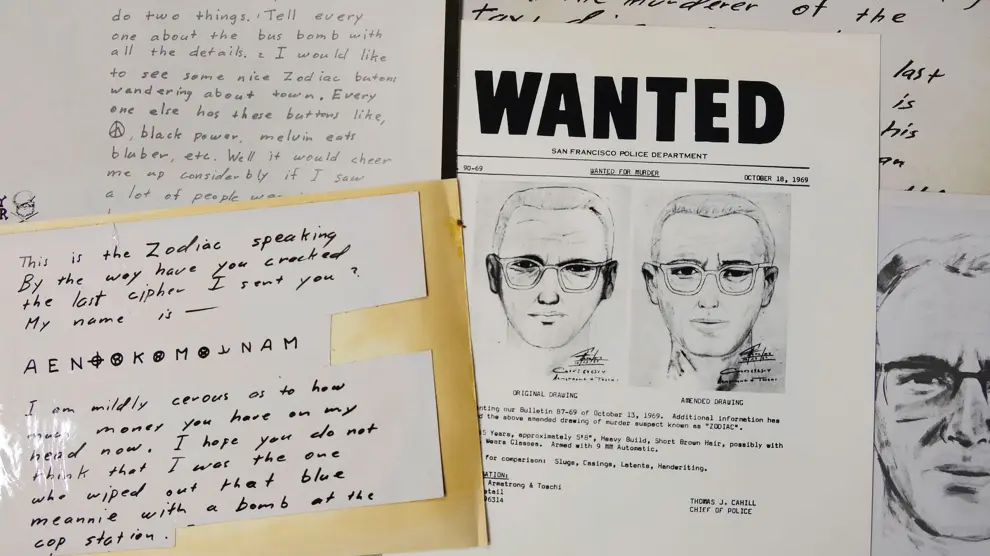 do two things. Tell every
one about the bus bomb with
all the details. 2 I would like
to see some nice Zodiac butons
wandering about town. Every
one else has these buttons like,
☮, black power, melvin eats
bluber, etc. Well it would cheer
me up considerbly if I saw
a lot of people
This is the Zodiac speaking
By the way have you cracked
the last cipher I sent you?
My name is —
A E N ⌖ ⊗ K ⊗ M ⊗ ⅃ N A M
I am mildly cerous as to how
much money you have on my
head now. I hope you do not
think that I was the one
who wiped out that blue
meannie with a bomb at the
cop station.
murderer of the
last
is
his
WANTED
SAN FRANCISCO POLICE DEPARTMENT
90-69 WANTED FOR MURDER OCTOBER 18, 1969
ORIGINAL DRAWING AMENDED DRAWING
nting our Bulletin 87-69 of October 13, 1969. Additional information has
the above amended drawing of murder suspect known as "ZODIAC".
5 Years, approximately 5'8", Heavy Build, Short Brown Hair, possibly with
Wears Glasses. Armed with 9 MM Automatic.
for comparison: Slugs, Casings, Latents, Handwriting.
ATION:
Armstrong & Toschi
etail
96314
THOMAS J. CAHILL
CHIEF OF POLICE